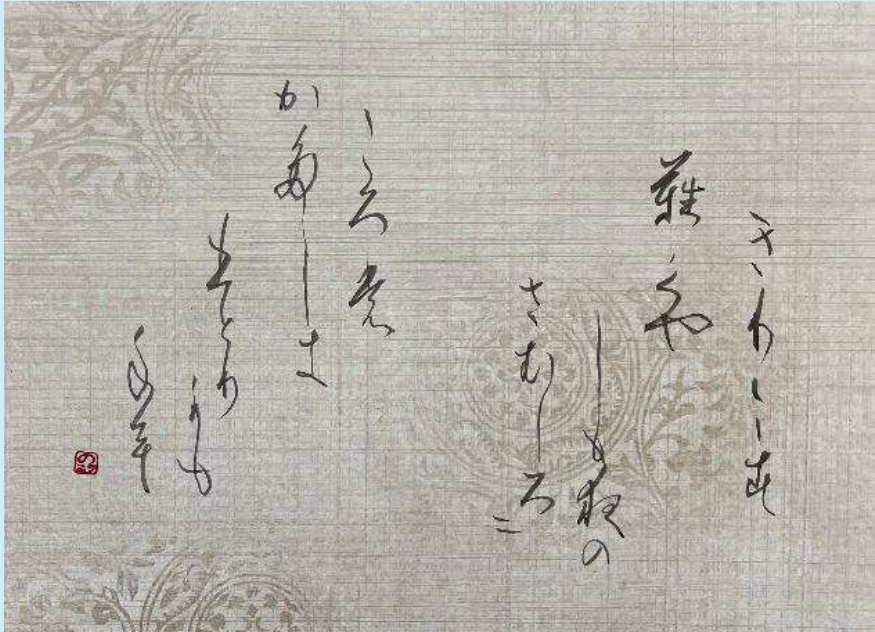 きりぎりす
難くや
しも夜の
さむしろ二
ころも
か多しき
ひとり
かも